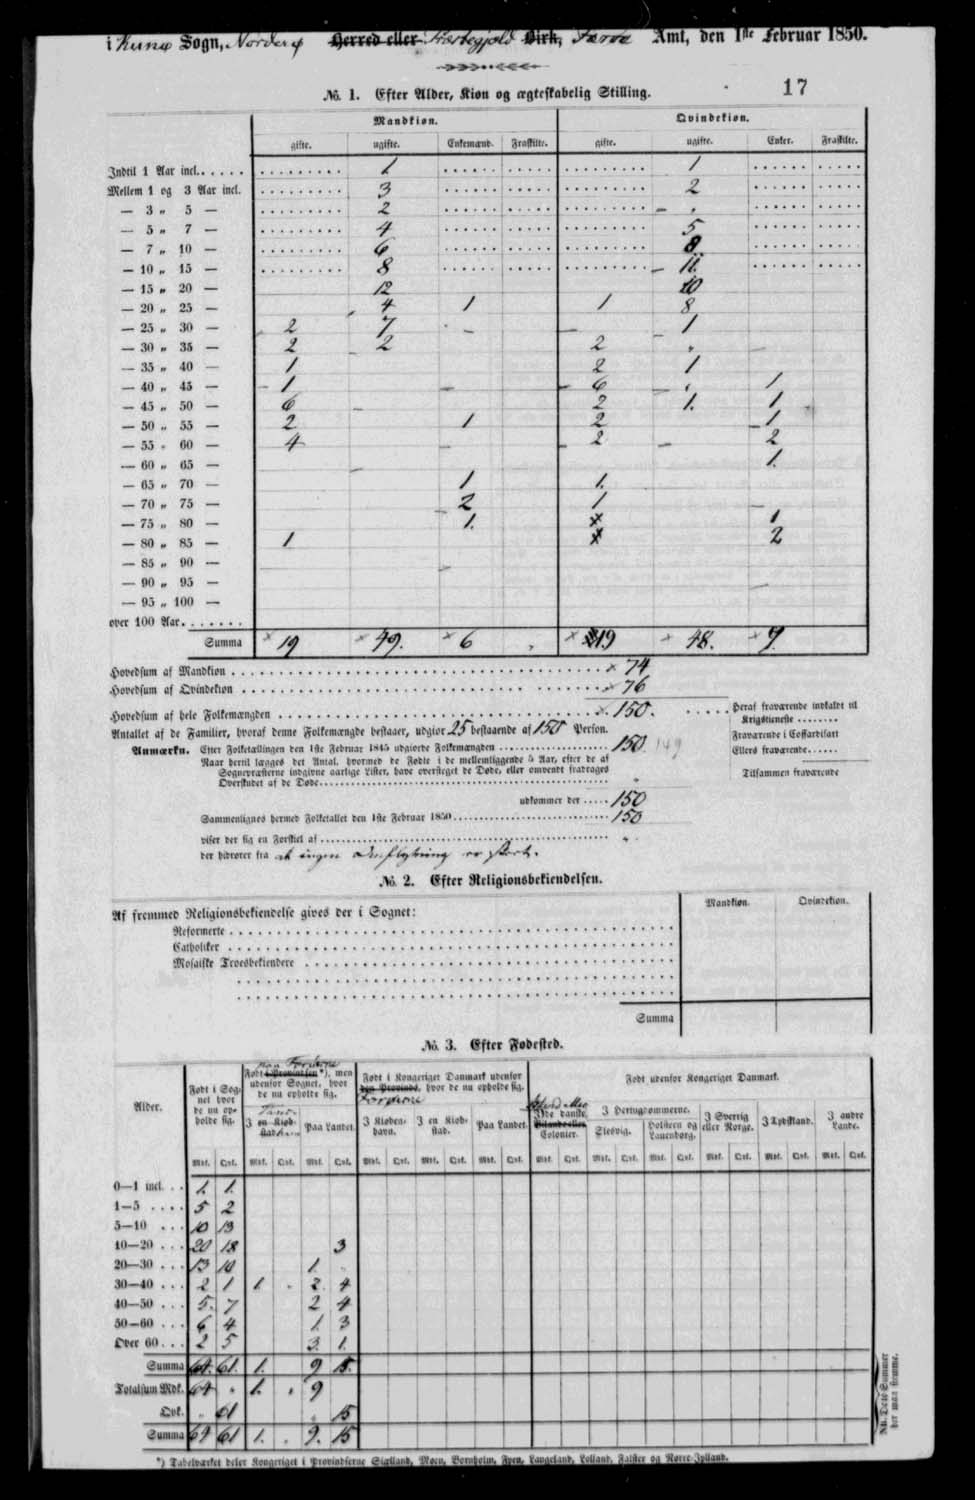 i Kunø Sogn, Norderø Herred eller Præstegjeld Birk, Færø Amt, den 1ste Februar 1850.
17
No. 1. Efter Alder, Kion og ægteskabelig Stilling.
Mandkion. Qvindekion.
gifte. ugifte. Enkemænd. Fraskilte. gifte. ugifte. Enker. Fraskilte.
Indtil 1 Aar incl. 1 1
Mellem 1 og 3 Aar incl. 3 2
— 3 „ 5 — 2 „
— 5 „ 7 — 4 5
— 7 „ 10 — 6 8
— 10 „ 15 — 8 11.
— 15 „ 20 — 12 10
— 20 „ 25 — 4 1 1 8
— 25 „ 30 — 2 7 1
— 30 „ 35 — 2 2 2 „
— 35 „ 40 — 1 2 1
— 40 „ 45 — 1 6 „ 1
— 45 „ 50 — 6 2 1. 1
— 50 „ 55 — 2 1 2 1
— 55 „ 60 — 4 2 2
— 60 „ 65 — 1.
— 65 „ 70 — 1 1.
— 70 „ 75 — 2 1
— 75 „ 80 — 1. 1
— 80 „ 85 — 1 2
— 85 „ 90 —
— 90 „ 95 —
— 95 „ 100 —
over 100 Aar.
Summa 19 49. 6 „ 19 48. 9.
Hovedsum af Mandkion 74
Hovedsum af Qvindekion 76
Hovedsum af hele Folkemængden 150.
Heraf fraværende indkaldt til Krigstieneste
Antallet af de Familier, hvoraf denne Folkemængde bestaaer, udgiør 25 bestaaende af 150 Person.
Fraværende i Coffardifart
Anmærkn. Efter Folketællingen den 1ste Februar 1845 udgiorde Folkemængden 150 149
Ellers fraværende
Naar hertil lægges det Antal, hvormed de Fødte i de mellemliggende 5 Aar, efter de af
Sognepræsterne indgivne aarlige Lister, have oversteget de Døde, eller omvendt fradrages
Tilsammen fraværende
Overskudet af de Døde „
udkommer der 150
Sammenlignes hermed Folketallet den 1ste Februar 1850 150
viser der sig en Forskiel af „
der hidrører fra at ingen Omflytning er skeet.
No. 2. Efter Religionsbekiendelsen.
Mandkion. Qvindekion.
Af fremmed Religionsbekiendelse gives der i Sognet:
Reformerte
Catholiker
Mosaiske Troesbekiendere
Summa
No. 3. Efter Fødested.
Alder.
Født i Sognet hvor de nu opholde sig.
paa Færøerne
Født i Provindsen *), men udenfor Sognet, hvor de nu opholde sig.
Født i Kongeriget Danmark udenfor den Provinds, hvor de nu opholde sig.
Færøerne
Født udenfor Kongeriget Danmark.
I en Kiøbstad Paa Landet. I Kiøbenhavn. I en Kiøbstad. Paa Landet.
I de danske Colonier. I Hertugdømmerne. Slesvig. Holsteen og Lauenborg. I Sverrig eller Norge. I Tydskland. I andre Lande.
Mdk. Qvk. Mdk. Qvk. Mdk. Qvk. Mdk. Qvk. Mdk. Qvk. Mdk. Qvk. Mdk. Qvk. Mdk. Qvk. Mdk. Qvk. Mdk. Qvk. Mdk. Qvk. Mdk. Qvk.
0—1 incl. 1. 1.
1—5 5 2
5—10 10 13
10—20 20 18 3
20—30 13 10 1. „
30—40 2 1 1. „ 2 4
40—50 5. 7 2 4
50—60 6 4 1. 3
Over 60 2 5 3. 1.
Summa 64. 61. 1. 9 15.
Totalsum Mdk. 64 „ 1. „ 9
Qvk. „ 61 „ 15
Summa 64 61 1. „ 9. 15
NB. Disse Summer her maa stemme.
*) Tabelværket deler Kongeriget i Provindserne Siælland, Moen, Bornholm, Fyen, Langeland, Lolland, Falster og Nørre-Jylland.